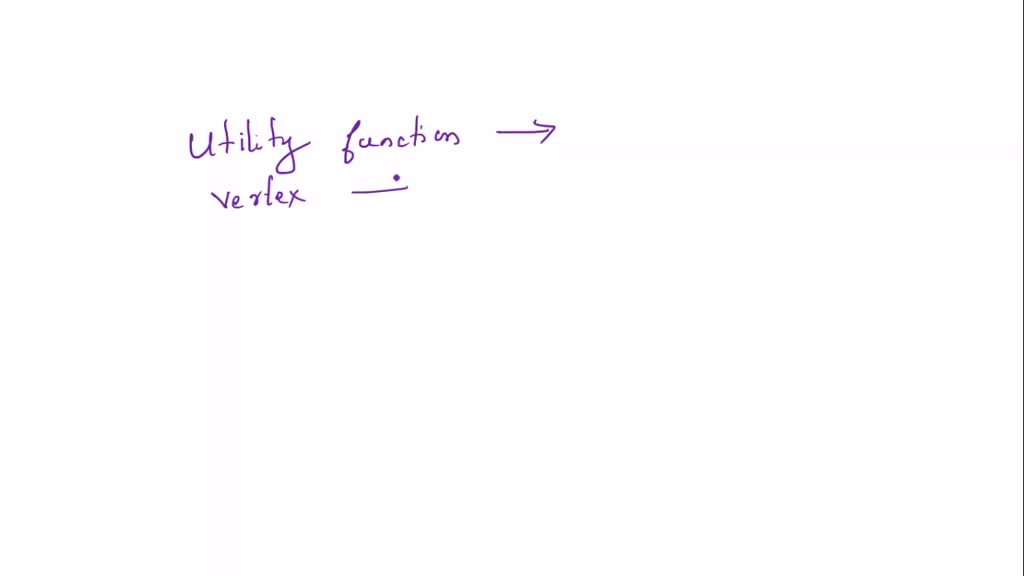 Utility function →
vertex